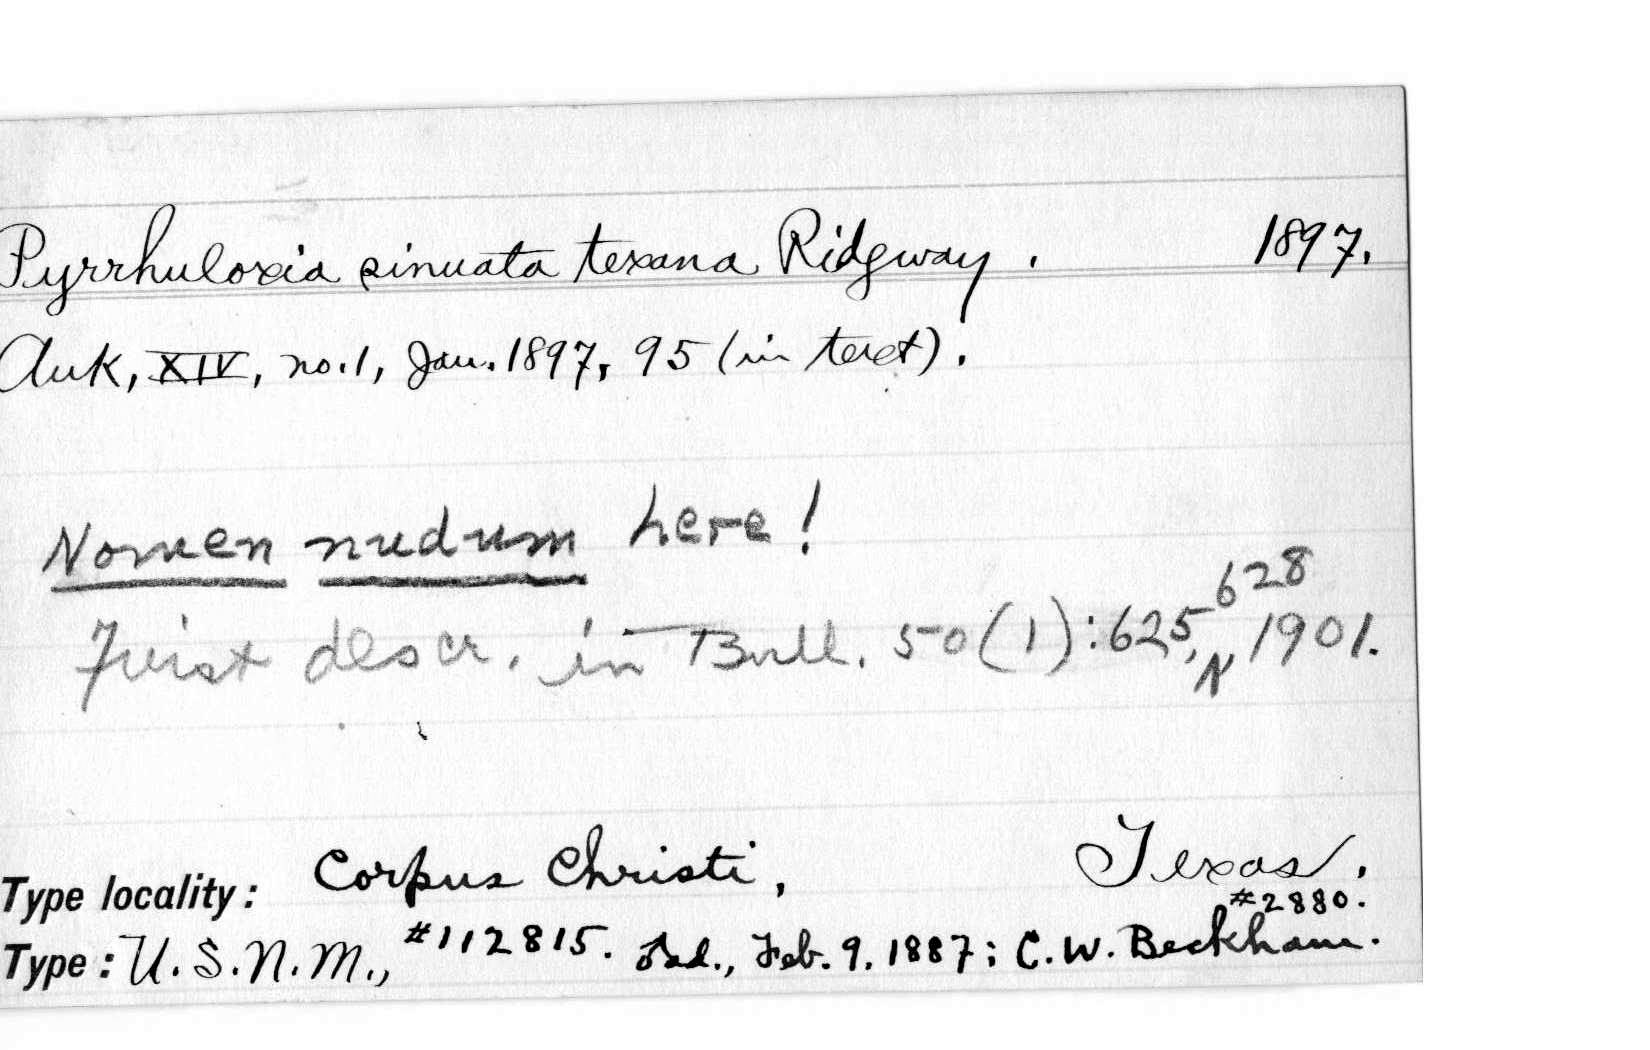 Pyrrhuloxia sinuata texana Ridgway. 1897.
Auk, XIV, no. 1, Jan. 1897, 95 (in text).
Nomen nudum here!
628
First descr. in Bull. 50(1):625, N 1901.
Type locality: Corpus Christi, Texas.
#2880.
Type: U.S.N.M., #112815. Ad., Feb. 9, 1887; C. W. Beckham.